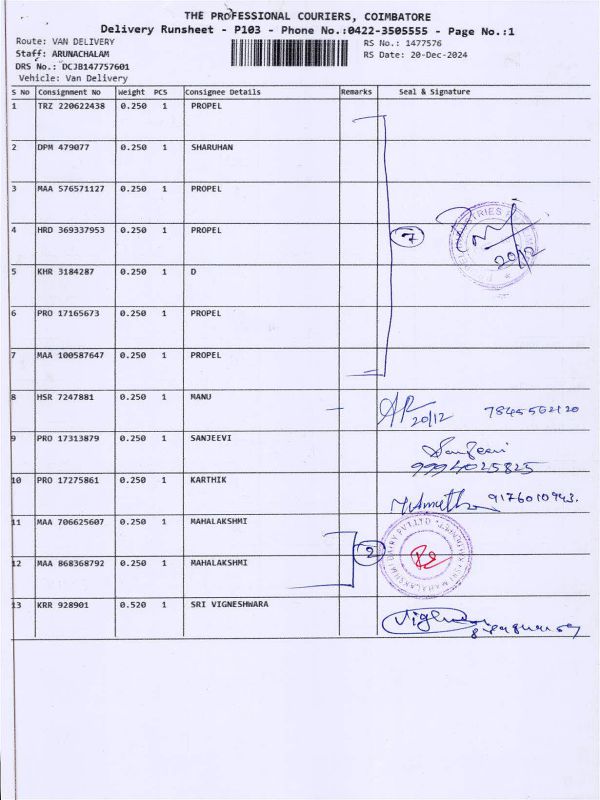 THE PROFESSIONAL COURIERS, COIMBATORE
Delivery Runsheet - P103 - Phone No.:0422-3505555 - Page No.:1
Route: VAN DELIVERY RS No.: 1477576
Staff: ARUNACHALAM RS Date: 20-Dec-2024
DRS No.: DCJB147757601
Vehicle: Van Delivery
S No Consignment No Weight PCS Consignee Details Remarks Seal & Signature
1 TRZ 220622438 0.250 1 PROPEL
2 DPM 479077 0.250 1 SHARUHAN
3 MAA 576571127 0.250 1 PROPEL
4 HRD 369337953 0.250 1 PROPEL 7 20/12
5 KHR 3184287 0.250 1 D
6 PRO 17165673 0.250 1 PROPEL
7 MAA 100587647 0.250 1 PROPEL
8 HSR 7247881 0.250 1 MANU 20/12 7845562120
9 PRO 17313879 0.250 1 SANJEEVI Sanjeevi
9994025825
10 PRO 17275861 0.250 1 KARTHIK 9176010943.
11 MAA 706625607 0.250 1 MAHALAKSHMI
12 MAA 868368792 0.250 1 MAHALAKSHMI 2
13 KRR 928901 0.520 1 SRI VIGNESHWARA